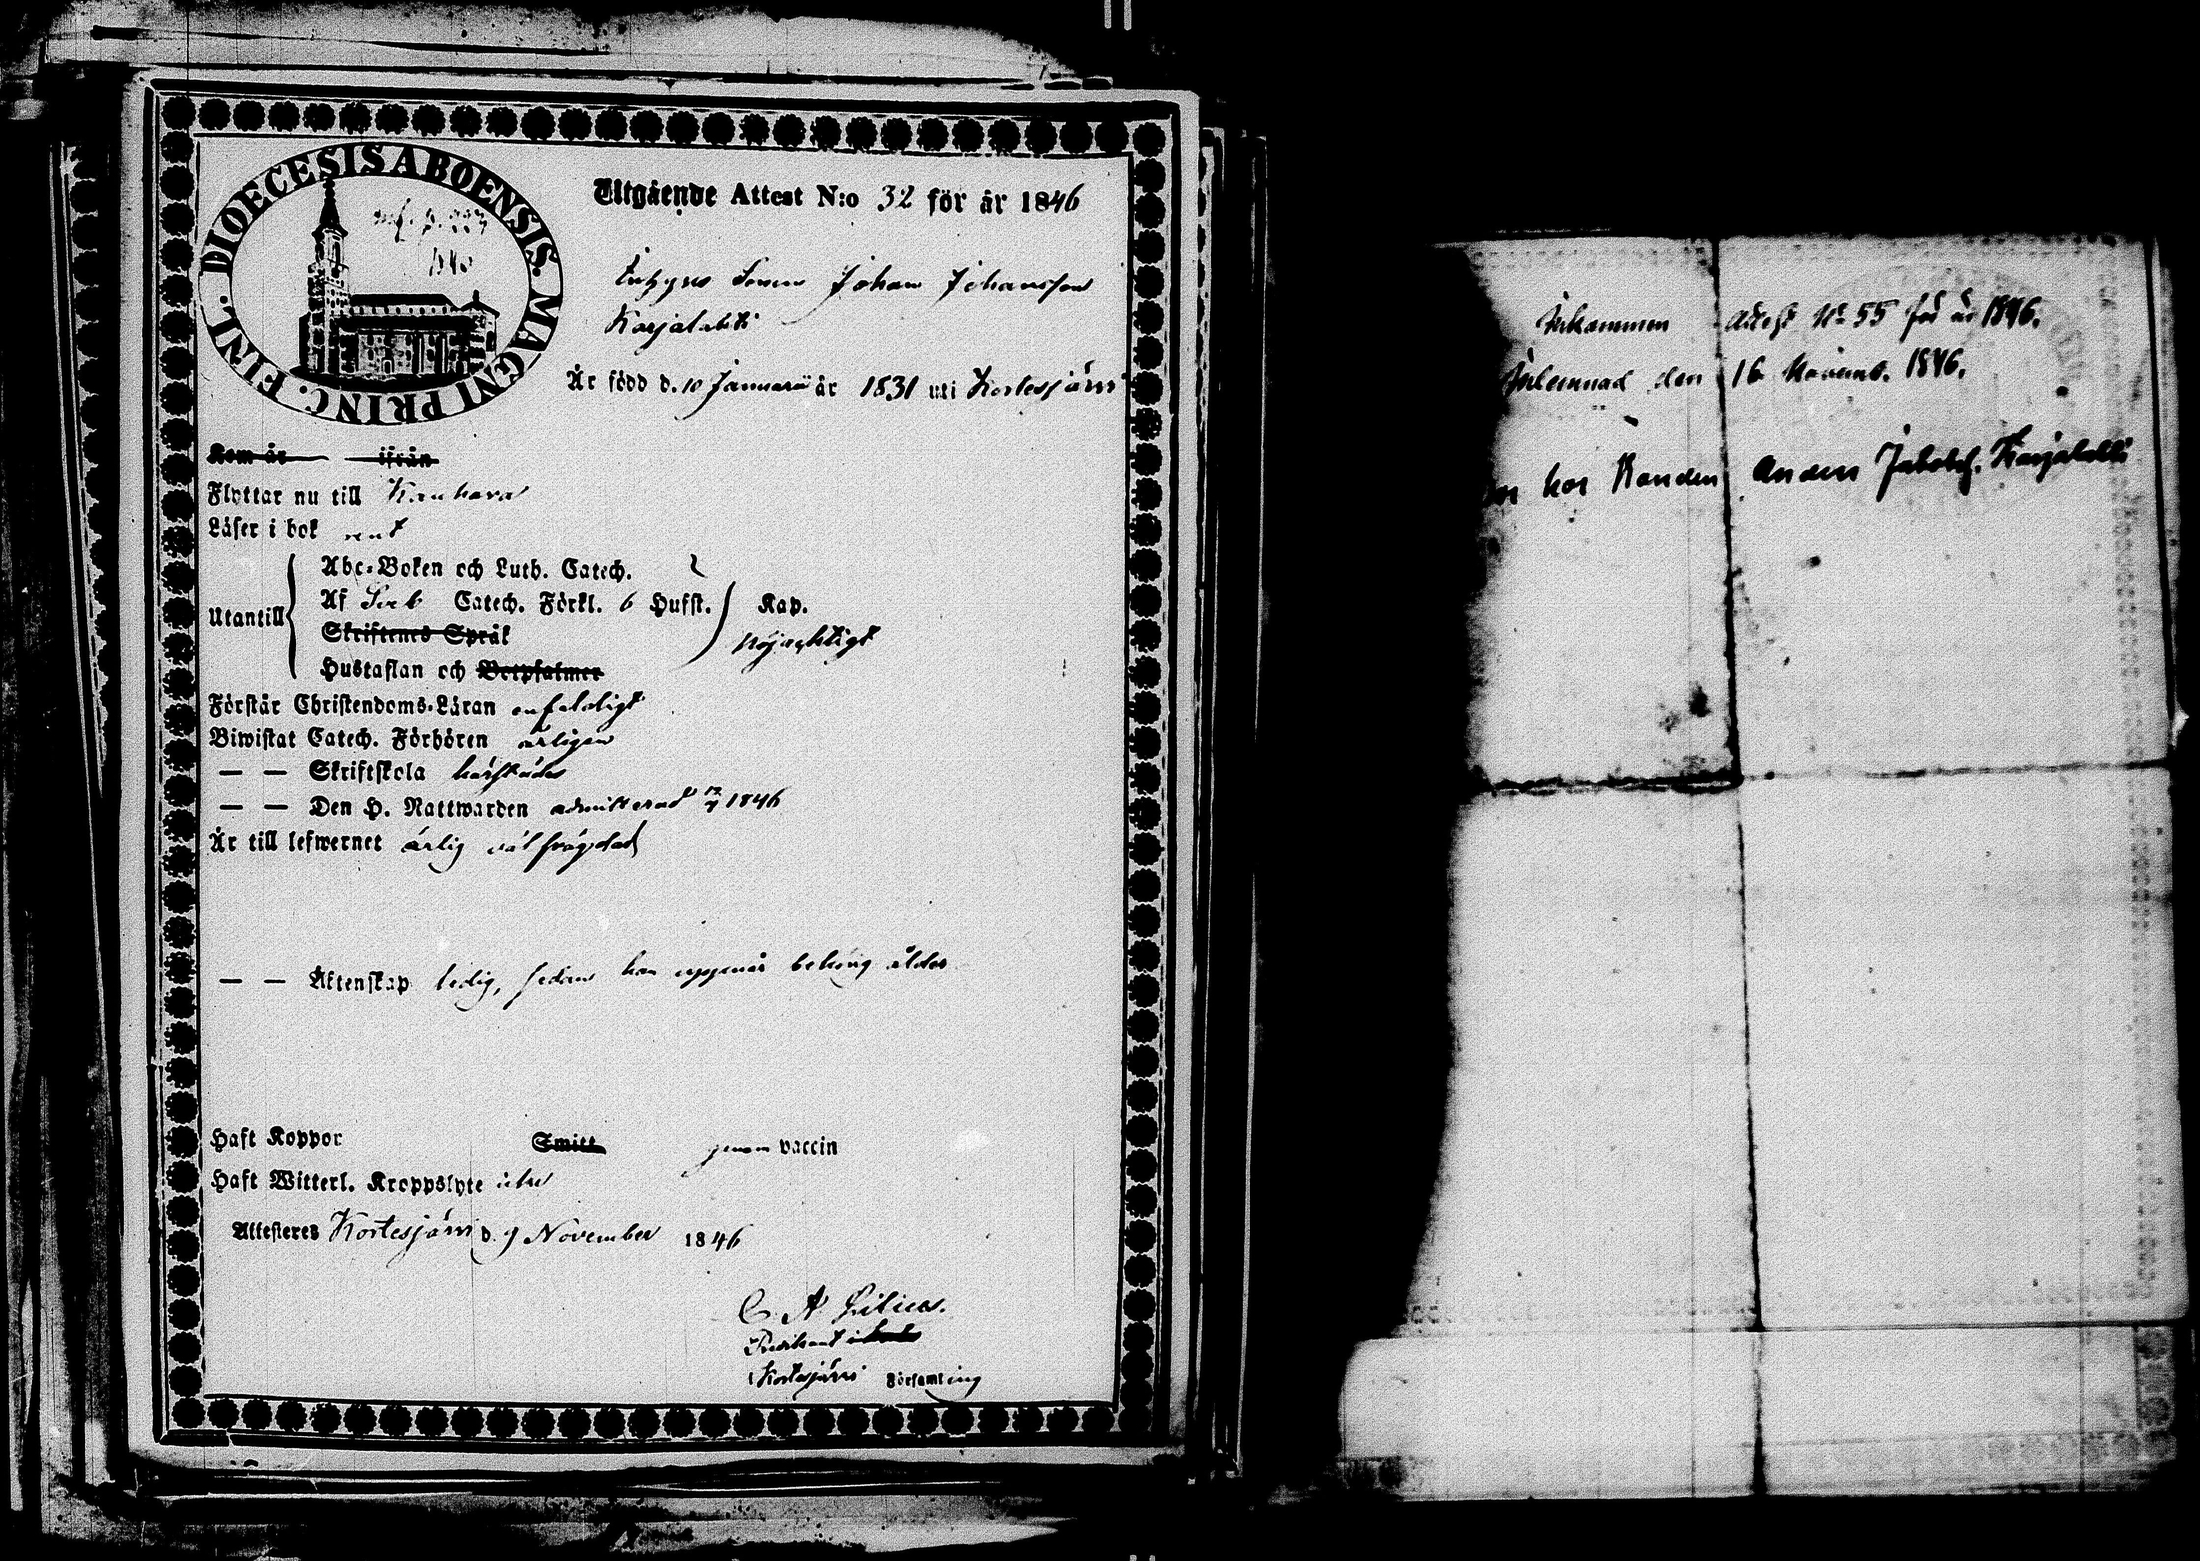 DIOECESIS ABOENSIS. MAGNI PRINC. FINL.
Utgående Attest N:o 32 för år 1846
Sonen Johan Johansson
Karjalahti
Är född d. 10 Januarii år 1831 uti Kortesjärvi
Kom år ifrån
Flyttar nu till Kauhava
Läser i bok rent
Utantill
Abc-Boken och Luth. Catech.
Af Sveb Catech. Förkl. 6 Hufst. Kap.
Skriftenes Språk
nöjaktigt
Hustaflan och Botpsalmer
Förstår Christendoms-Läran enfaldigt
Biwistat Catech. Förhören årligen
— — Skriftskola härstädes
— — Den H. Nattwarden admitterad 12/7 1846
Är till lefwernet ärlig väl frägdad
— — Äktenskap ledig, sedan han uppnår behörig ålder
Haft Koppor Smitt genom vaccin
Haft Witterl. Kroppslyte icke
Attesteres Kortesjärvi d. 9 November 1846
C. A. Lilius.
Predikant i
Kortesjärvi Församling
Inkommen attest No 55 för år 1846.
Inlemnad den 16 Novemb. 1846.
hos Bonden Anders Jakobss. Karjalahti